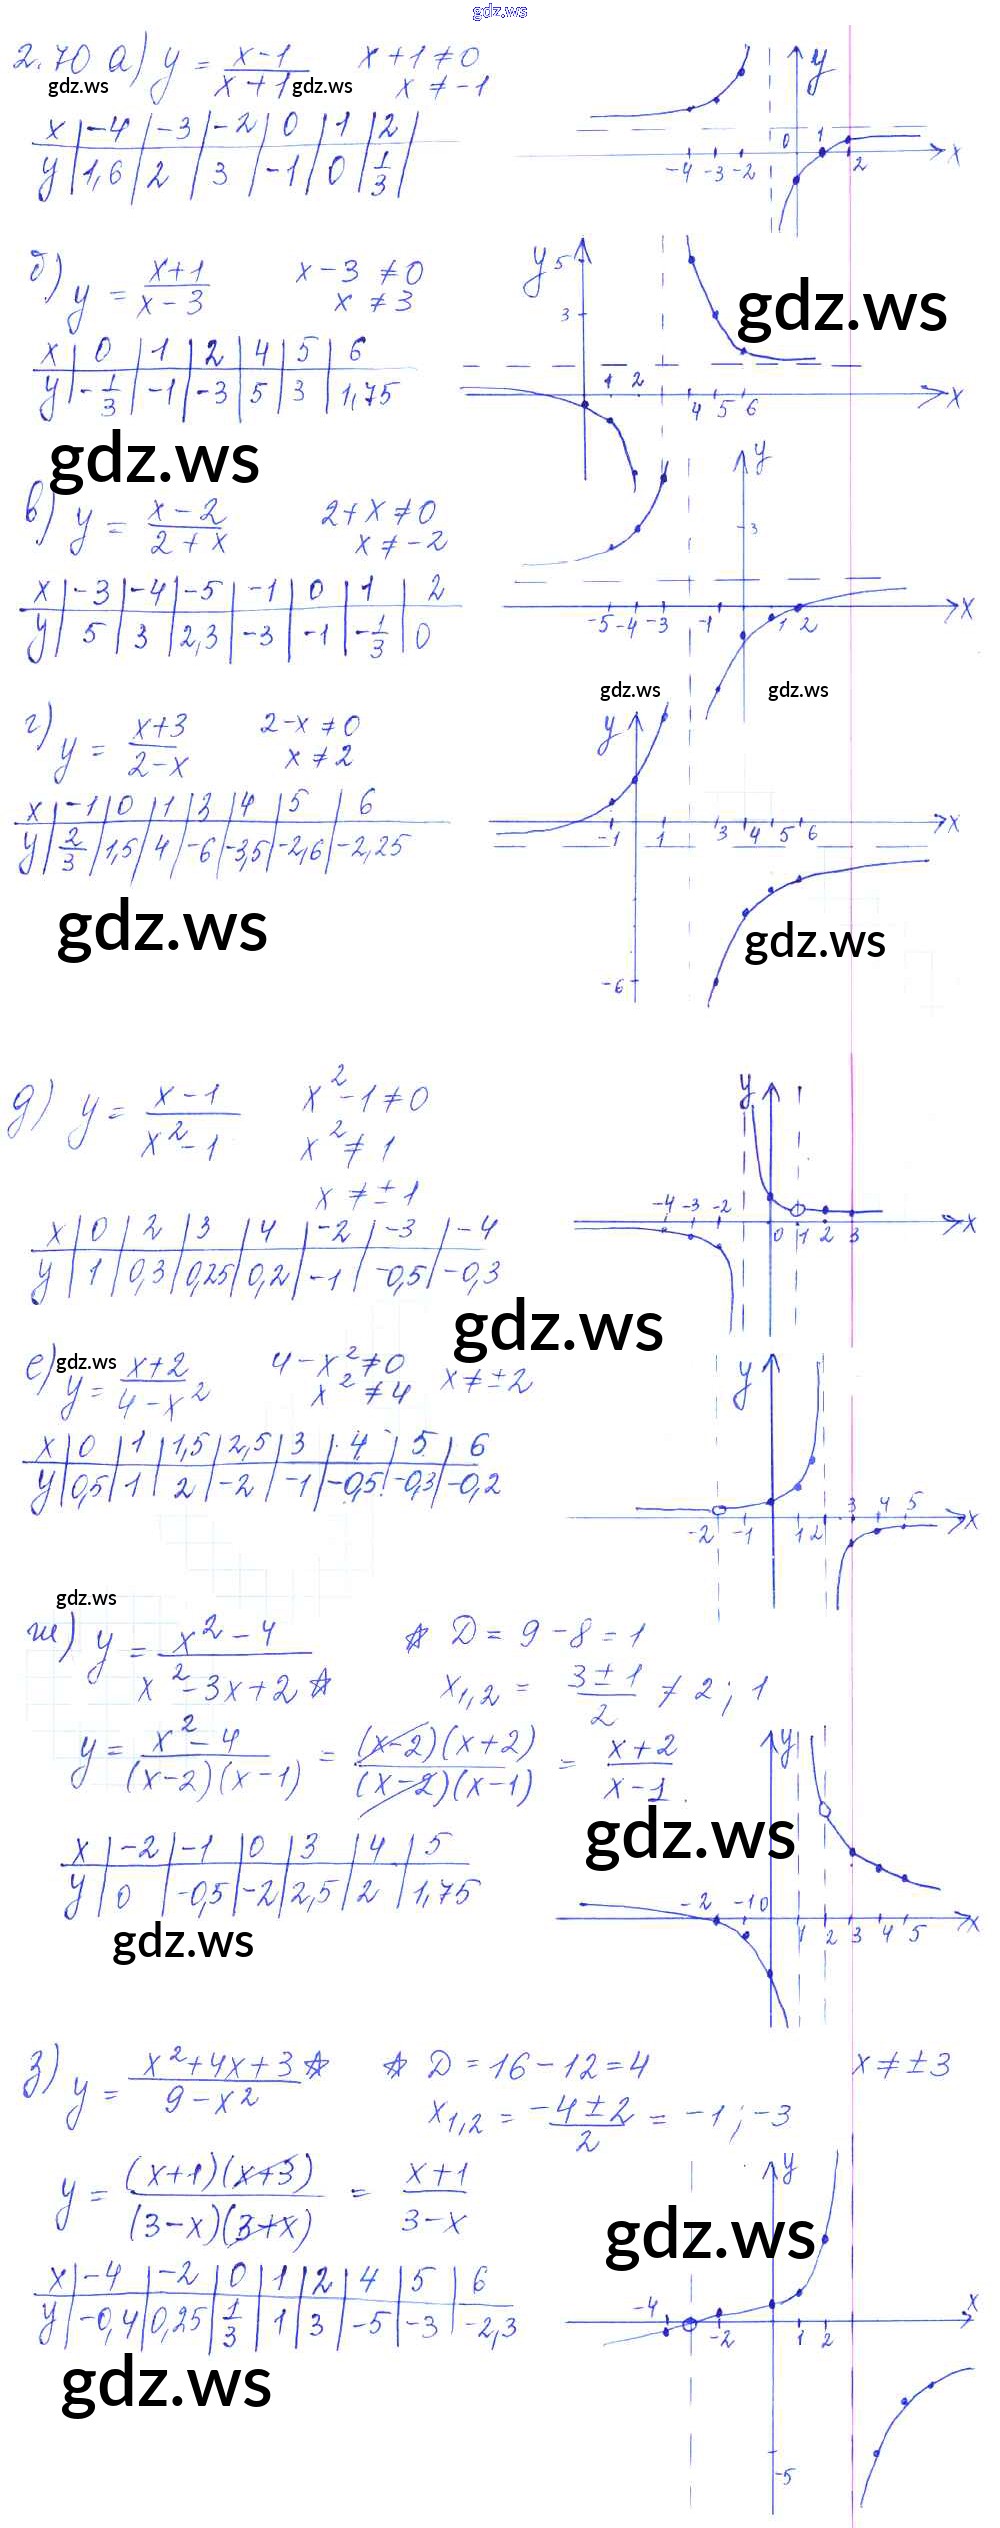 gdz.ws
2.70 а) y = (x-1)/(x+1)   x+1≠0
x ≠ -1
gdz.ws   gdz.ws
x | -4 | -3 | -2 | 0 | 1 | 2
y | 1,6 | 2 | 3 | -1 | 0 | 1/3
y
0 1 2 x
-4 -3 -2
б) y = (x+1)/(x-3)   x-3 ≠0
x ≠3
x | 0 | 1 | 2 | 4 | 5 | 6
y | -1/3 | -1 | -3 | 5 | 3 | 1,75
y 5
3
1 2 4 5 6 x
gdz.ws
gdz.ws
в) y = (x-2)/(2+x)   2+x≠0
x≠-2
x | -3 | -4 | -5 | -1 | 0 | 1 | 2
y | 5 | 3 | 2,3 | -3 | -1 | -1/3 | 0
y
3
-5 -4 -3 -1 1 2 x
gdz.ws   gdz.ws
г) y = (x+3)/(2-x)   2-x≠0
x≠2
x | -1 | 0 | 1 | 3 | 4 | 5 | 6
y | 2/3 | 1,5 | 4 | -6 | -3,5 | -2,6 | -2,25
y
-1 1 3 4 5 6 x
-6
gdz.ws
gdz.ws
д) y = (x-1)/(x²-1)   x²-1≠0
x²≠1
x≠±1
x | 0 | 2 | 3 | 4 | -2 | -3 | -4
y | 1 | 0,3 | 0,25 | 0,2 | -1 | -0,5 | -0,3
y
-4 -3 -2 0 1 2 3 x
gdz.ws
gdz.ws
е) y = (x+2)/(4-x²)   4-x²≠0   x≠±2
x²≠4
x | 0 | 1 | 1,5 | 2,5 | 3 | 4 | 5 | 6
y | 0,5 | 1 | 2 | -2 | -1 | -0,5 | -0,3 | -0,2
y
-2 -1 1 2 3 4 5 x
gdz.ws
ж) y = (x²-4)/(x²-3x+2)*   * D = 9-8=1
x1,2 = (3±1)/2 ≠ 2; 1
y = (x²-4)/((x-2)(x-1)) = ((x-2)(x+2))/((x-2)(x-1)) = (x+2)/(x-1)
gdz.ws
x | -2 | -1 | 0 | 3 | 4 | 5
y | 0 | -0,5 | -2 | 2,5 | 2 | 1,75
y
-2 -1 0 1 2 3 4 5 x
gdz.ws
з) y = (x²+4x+3*)/(9-x²)   * D=16-12=4   x≠±3
x1,2 = (-4±2)/2 = -1; -3
y = ((x+1)(x+3))/((3-x)(3+x)) = (x+1)/(3-x)
gdz.ws
x | -4 | -2 | 0 | 1 | 2 | 4 | 5 | 6
y | -0,4 | 0,25 | 1/3 | 1 | 3 | -5 | -3 | -2,3
y
-4 -2 1 2 x
-5
gdz.ws